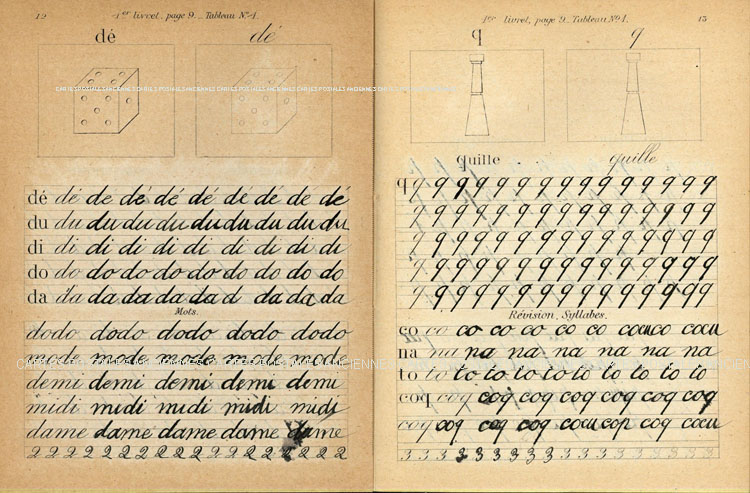 12 1er livret, page 9._Tableau No 1.
dé dé
dé dé de dé dé dé de dé de dé
du du du du du du du du du du
di di di di di di di di di di
do do do do do do do do do do
da da da da da da d da da da
Mots.
dodo dodo dodo dodo dodo
mode mode mode mode mode
demi demi demi demi demi
midi midi midi midi midi
dame dame dame dame dame
2 2 2 2 2 2 2 2 2 2 2 2 2 2 2 2 2 2 2 2
1er livret, page 9._Tableau No 1. 13
q q
quille quille
q q q q q q q q q q q q q q q q
q q q q q q q q q q q q q q q
q q q q q q q q q q q q q q q
q q q q q q q q q q q q q q q
q q q q q q q q q q q q q q q
Révision. Syllabes.
co co co co co co co cau co cau
na na na na na na na na
to to to to to to to to to to
coq coq coq coq coq coq coq coq
coq coq coq coq cau cop coq cau
3 3 3 3 3 3 3 3 3 3 3 3 3 3 3 3 3 3 3
CARTES POSTALES ANCIENNES